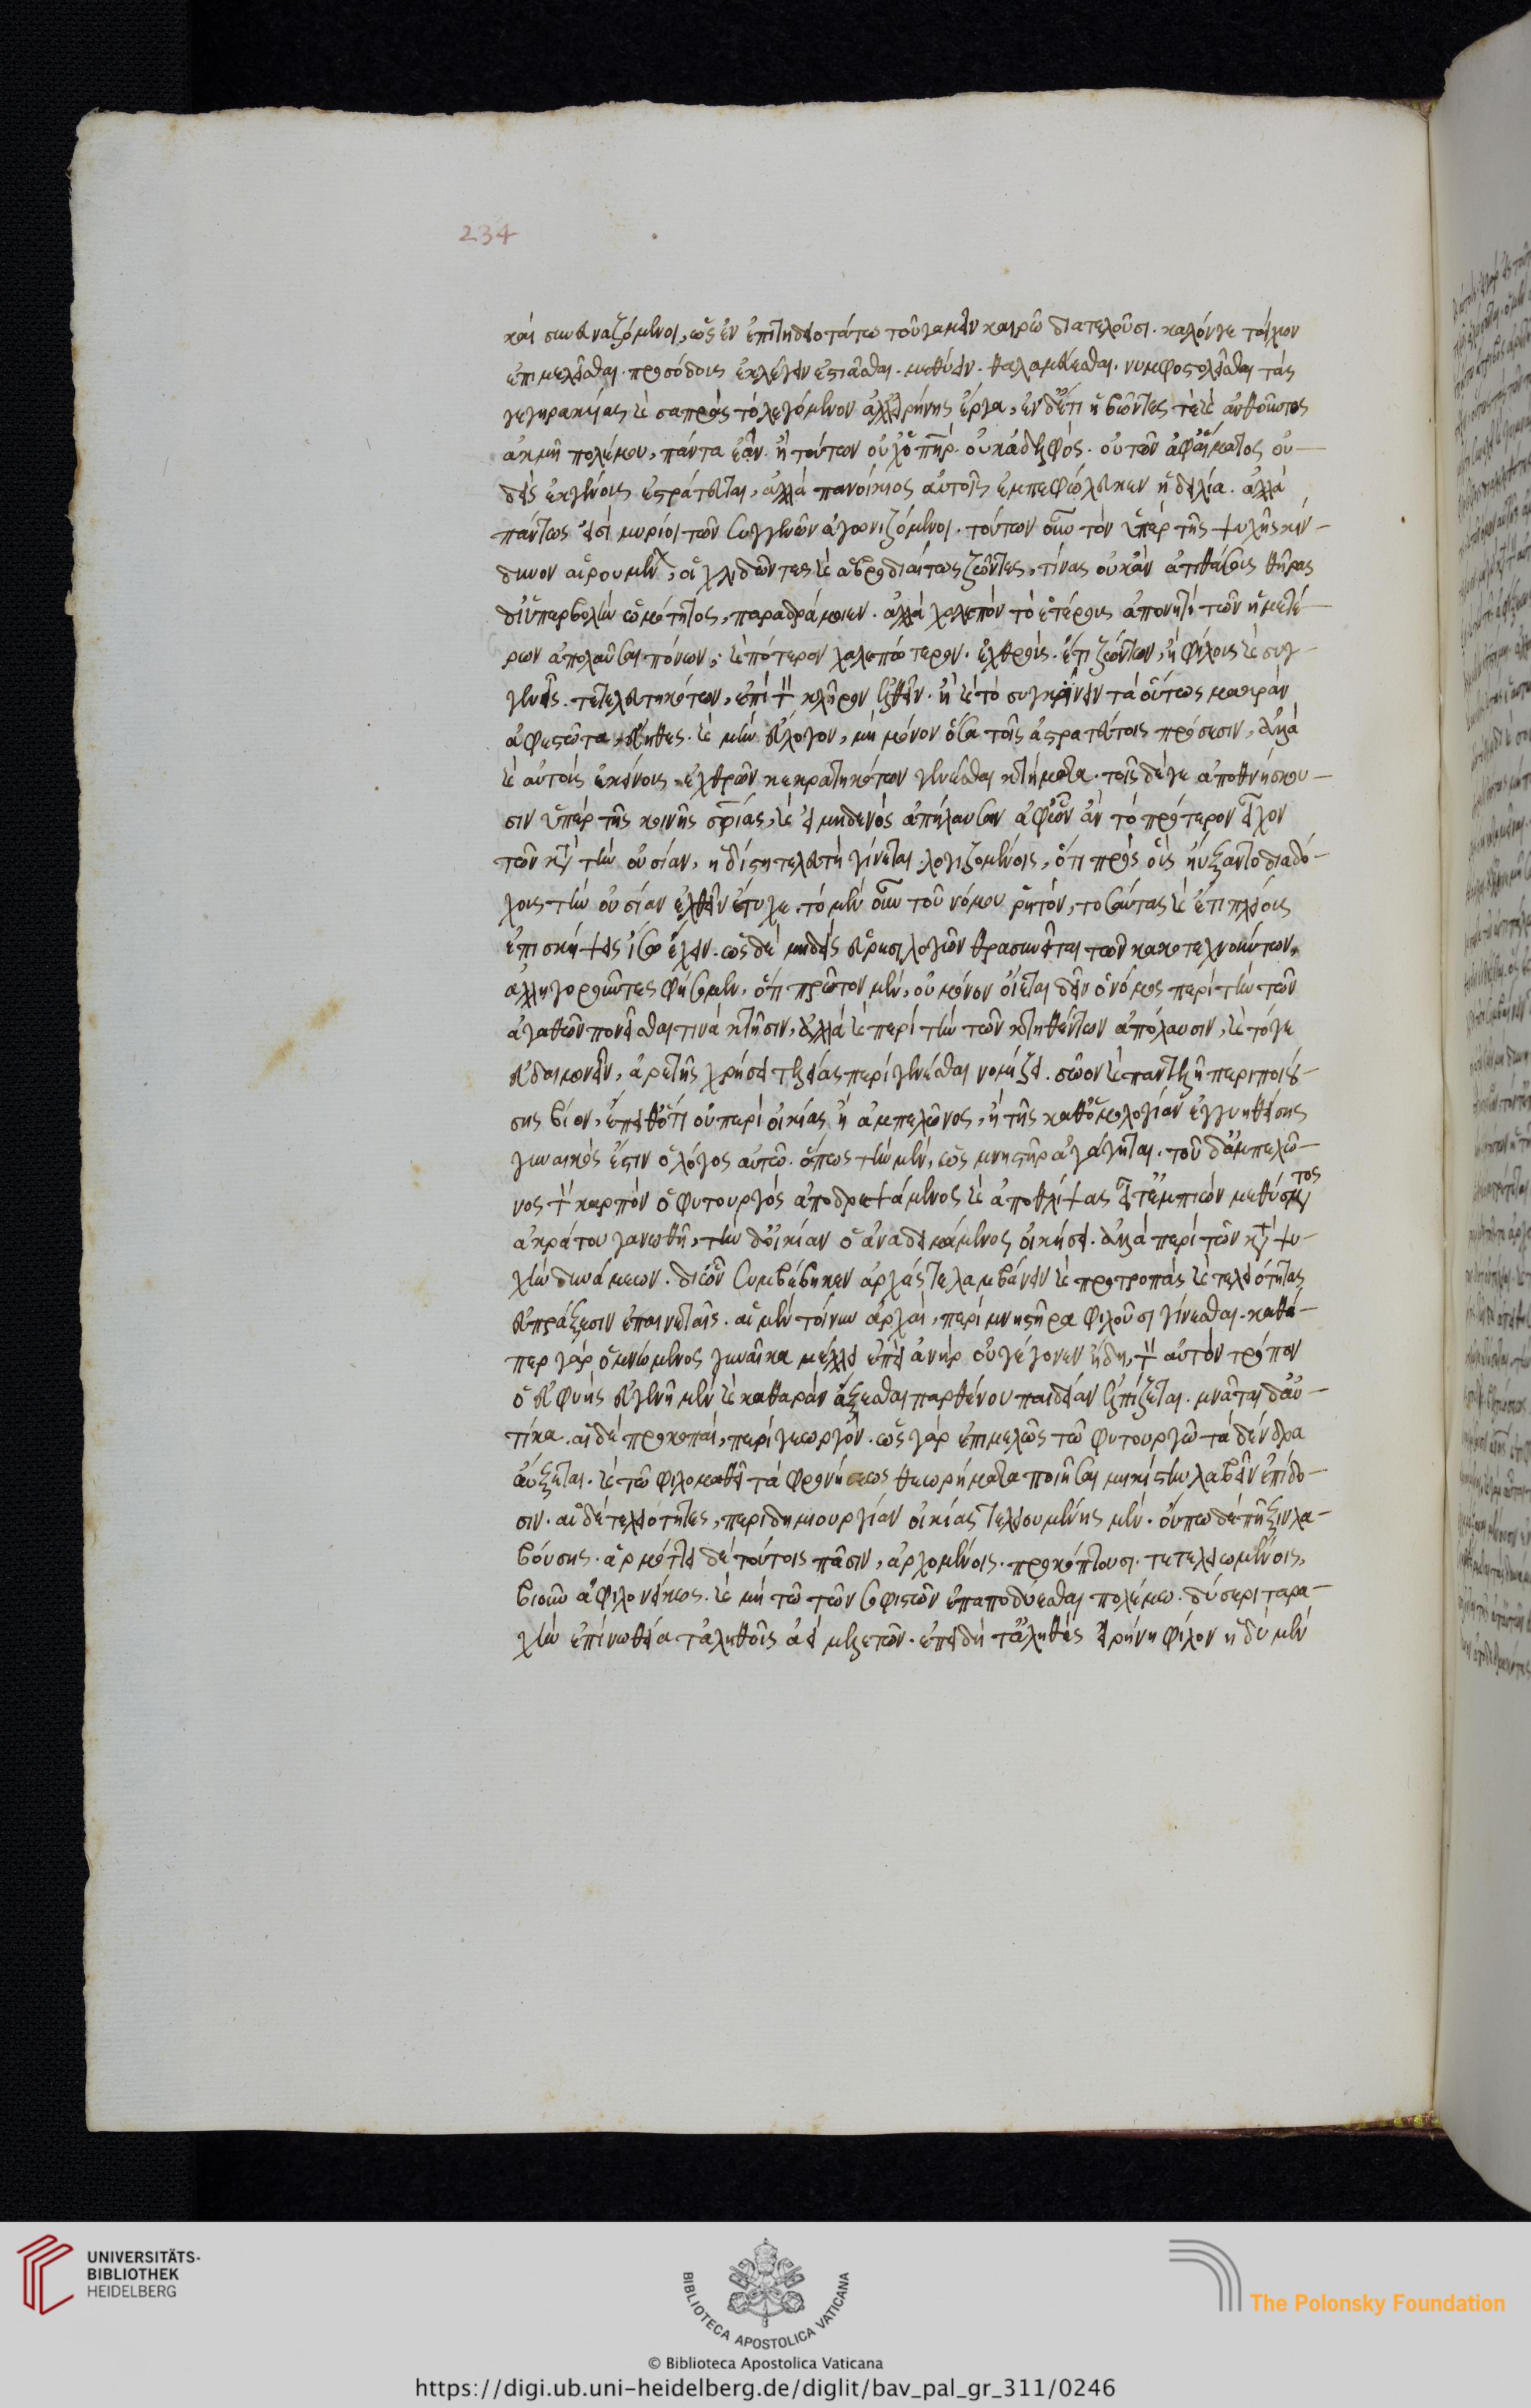 καὶ συνευναζόμενοι, ὡς ἐν ἐπιτηδειοτάτω τοῦ γαμεῖν καιρῶ διατελοῦσι. καλόν γε τὸ γάμον
ἐπιμελεῖσθαι. προσόδους ἐκλέγειν ἑστιᾶσθαι. μεθύειν. θαλαμεύεσθαι. νυμφοστολεῖσθαι τὰς
γεγηρακυίας καὶ σαπρὰς τὸ λεγόμενον ἀλλ' εἰρήνης ἔργα, ἐν δ' ἔτι ἡβῶντος τὲ καὶ ἀνθοῦντος
ἀκμῆ πολέμου, πάντα ἐᾶν. ἢ τούτων οὐχ ὁ πηρ. οὐκ ἀδελφός. οὐ τῶν ἀφ' αἵματος οὐ-
δεὶς ἐκ γένους ἐστράτευται, ἀλλὰ πανοίκιος αὐτοῖς ἐμπεφώλευκεν ἡ δειλία. ἀλλὰ
πάντως εἰσὶ μυρίοι τῶν συγγενῶν ἀγωνιζόμενοι. τούτων οὖν τὸν ὑπὲρ τῆς ψυχῆς κίν-
δυνον αἱρουμένων, οἱ χλιδῶντες καὶ ἁβροδιαίτως ζῶντες, τίνας οὐκ ἂν ἀτιθάσους θῆρας
δι' ὑπερβολὴν ὠμότητος, παραδράμοιεν. ἀλλὰ χαλεπὸν τὸ ἑτέρους ἀπονητὶ τῶν ἡμετέ-
ρων ἀπολαῦσαι πόνων; καὶ πότερον χαλεπώτερον. ἐχθροὺς. ἔτι ζώντων, ἢ φίλους καὶ συγ-
γενεῖς. τετελευτηκότων, ἐπὶ τὸν κλῆρον ἐλθεῖν. ἢ καὶ τὸ συγκρίνειν τὰ οὕτως μακρὰν
ἀφεστῶτα, εὔηθες. καὶ μὴν εὔλογον, μὴ μόνον ὅσα τοῖς ἀστρατεύτοις πρόσεστιν, ἀλλὰ
καὶ αὐτοὺς ἐκείνους ἐχθρῶν κεκρατηκότων γενέσθαι κτήματα. τοῖς δέ γε ἀποθνήσκου-
σιν ὑπὲρ τῆς κοινῆς σρίας, καὶ εἰ μηδενὸς ἀπήλαυσαν ἀφ' ὧν ἂν τὸ πρότερον εἶχον
τῶν κατὰ τὴν οὐσίαν, ἡδίστη τελευτὴ γίνεται. λογιζομένοις, ὅτι πρὸς οὓς ηὔξαντο διαδό-
χους τὴν οὐσίαν ἐλθεῖν ἔτυχε. τὸ μὲν οὖν τοῦ νόμου ῥητὸν, τοσαύτας καὶ ἔτι πλείους
ἐπισκήψεις ἴσως ἔχειν. ὡς δὲ μηδεὶς εὑρεσιλογῶν θρασύνηται τῶν κακοτεχνούντων,
ἀλληγοροῦντες φήσομεν, ὅτι πρῶτον μὲν, οὐ μόνον οἴεται δεῖν ὁ νόμος περὶ τὴν τῶν
ἀγαθῶν πονεῖσθαι τινὰ κτῆσιν, ἀλλὰ καὶ περὶ τὴν τῶν κτηθέντων ἀπόλαυσιν, καὶ τό γε
εὐδαιμονεῖν, ἀρετῆς χρήσει τελείας περιγενέσθαι νομίζει. σῶον καὶ παντελῆ περιποιού-
σης βίον, ἔπειθ' ὅτι οὐ περὶ οἰκίας ἢ ἀμπελῶνος, ἢ τῆς καθ' ὁμολογίαν ἐγγυηθείσης
γυναικός ἐστιν ὁ λόγος αὐτῶ. ὅπως τὴν μὲν, ὡς μνηστὴρ ἀγάγηται. τοῦ δ' ἀμπελῶ-
νος τὸν καρπὸν ὁ φυτουργὸς ἀποδρεψάμενος καὶ ἀποθλίψας εἶτ' ἐμπιὼν μεθύσματος
ἀκράτου γανωθῆ, τὴν δ' οἰκίαν ὁ ἀναδειμάμενος οἰκήσει. ἀλλὰ περὶ τῶν κατὰ ψυ-
χὴν δυνάμεων. δι' ὧν συμβέβηκεν ἀρχάς τε λαμβάνειν καὶ προτροπὰς καὶ τελειότητας
ἐν πράξεσιν ἐπαινεταῖς. αἱ μὲν τοίνυν ἀρχαὶ, περὶ μνηστῆρα φιλοῦσι γίνεσθαι. καθά-
περ γὰρ ὁ μνώμενος γυναῖκα μέλλει ἐπεὶ ἀνὴρ οὐ γέγονεν ἤδη, τὸν αὐτὸν τρόπον
ὁ εὐφυὴς εὐγενῆ μὲν καὶ καθαρὰν ἄξεσθαι παρθένον παιδείαν ἐλπίζεται. μνᾶται δ' αὐ-
τίκα. αἱ δὲ προκοπαὶ, περὶ γεωργόν. ὡς γὰρ ἐπιμελῶς τῶ φυτουργῶ τὰ δένδρα
αὔξεται. καὶ τῶ φιλομαθεῖ τὰ φρονήσεως θεωρήματα ποιῆσαι μηκίστην λαβεῖν ἐπίδο-
σιν. αἱ δὲ τελειότητες, περὶ δημιουργίαν οἰκίας τελειουμένης μὲν. οὔπω δὲ πῆξιν λα-
βούσης. ἁρμόττει δὲ τούτοις πᾶσιν, ἀρχομένοις. προκόπτουσι. τετελειωμένοις,
βιοῦν ἀφιλονείκως. καὶ μὴ τῶ τῶν σοφιστῶν ἐπαποδύεσθαι πολέμω. δύσεριν ταρα-
χὴν ἐπὶ νωθεία τἀληθοῦς ἀεὶ μελετῶν. ἐπειδὴ τἀληθὲς εἰρήνη φίλον ἡ δὲ μὲν
234
UNIVERSITÄTS-
BIBLIOTHEK
HEIDELBERG
BIBLIOTECA APOSTOLICA VATICANA
The Polonsky Foundation
© Biblioteca Apostolica Vaticana
https://digi.ub.uni-heidelberg.de/diglit/bav_pal_gr_311/0246